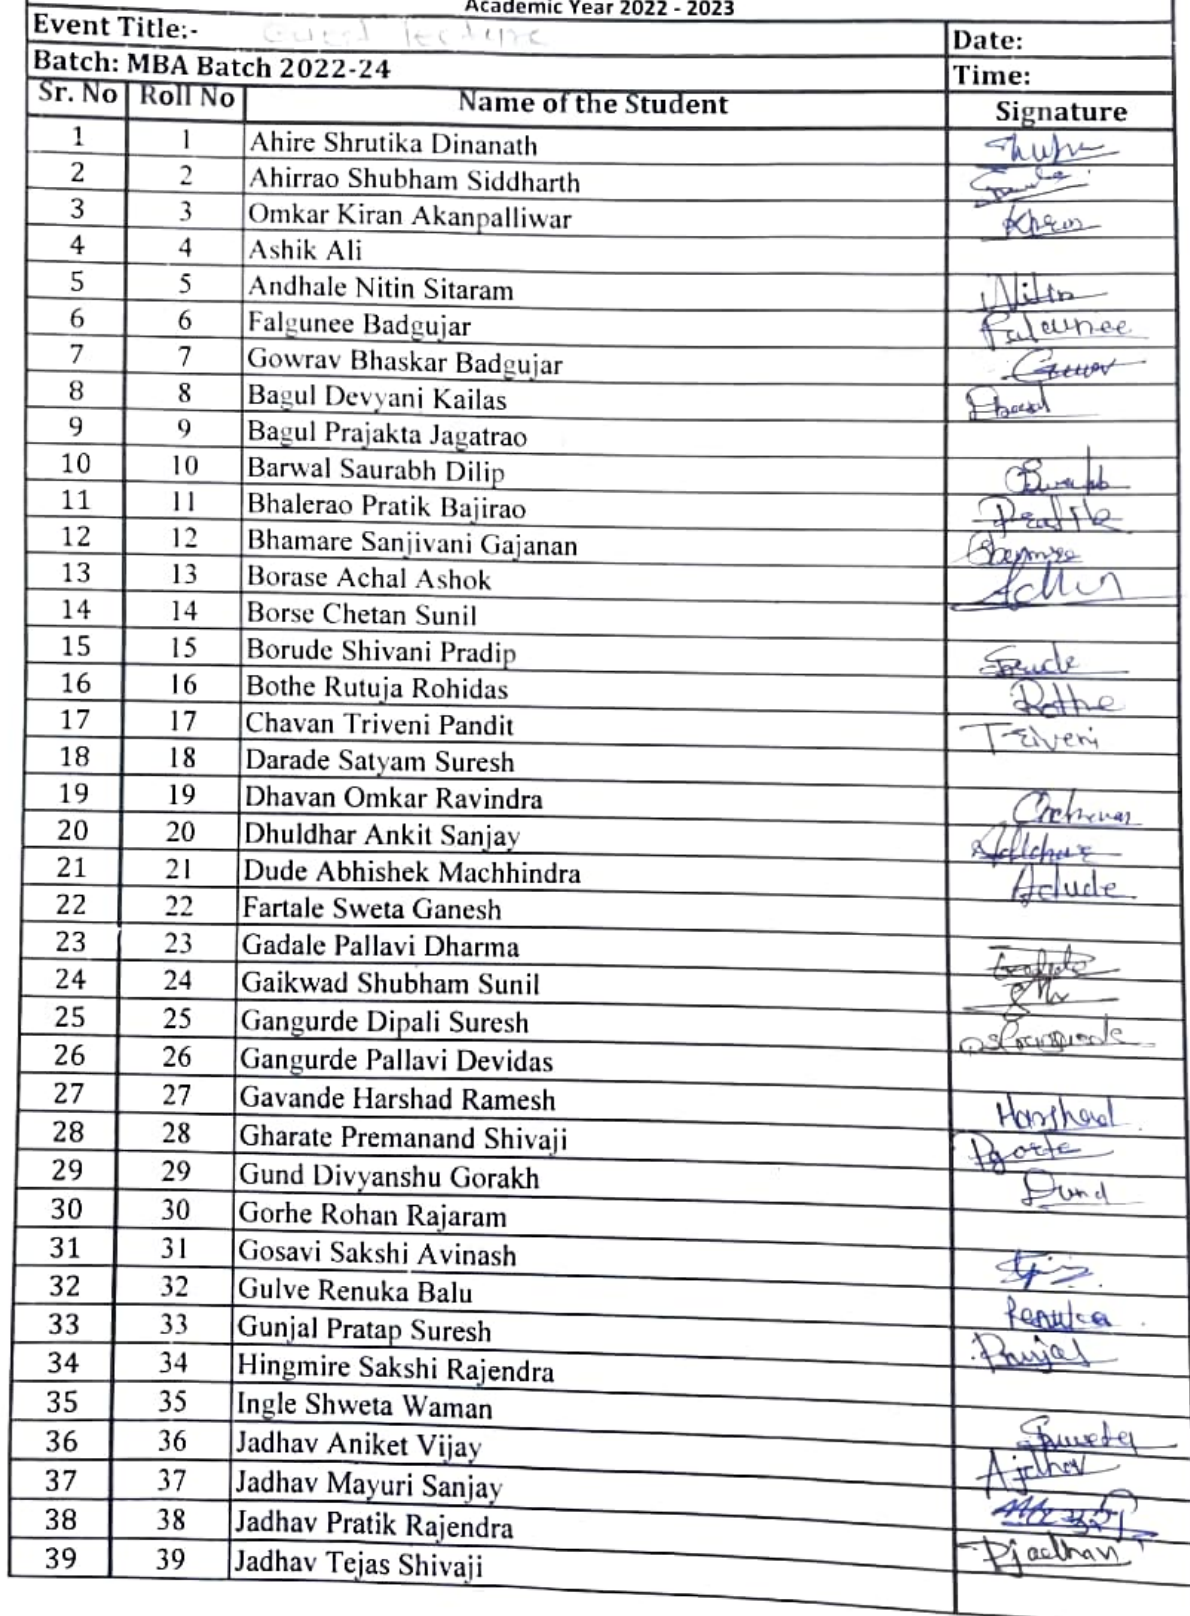 Academic Year 2022 - 2023
Event Title:- Guest lecture Date:
Batch: MBA Batch 2022-24 Time:
Sr. No Roll No Name of the Student Signature
1 1 Ahire Shrutika Dinanath
2 2 Ahirrao Shubham Siddharth
3 3 Omkar Kiran Akanpalliwar
4 4 Ashik Ali
5 5 Andhale Nitin Sitaram Nitin
6 6 Falgunee Badgujar Falgunee
7 7 Gowrav Bhaskar Badgujar
8 8 Bagul Devyani Kailas
9 9 Bagul Prajakta Jagatrao
10 10 Barwal Saurabh Dilip
11 11 Bhalerao Pratik Bajirao Pratik
12 12 Bhamare Sanjivani Gajanan
13 13 Borase Achal Ashok
14 14 Borse Chetan Sunil
15 15 Borude Shivani Pradip
16 16 Bothe Rutuja Rohidas Bothe
17 17 Chavan Triveni Pandit Triveni
18 18 Darade Satyam Suresh
19 19 Dhavan Omkar Ravindra
20 20 Dhuldhar Ankit Sanjay
21 21 Dude Abhishek Machhindra Adude
22 22 Fartale Sweta Ganesh
23 23 Gadale Pallavi Dharma
24 24 Gaikwad Shubham Sunil
25 25 Gangurde Dipali Suresh
26 26 Gangurde Pallavi Devidas
27 27 Gavande Harshad Ramesh Harshad
28 28 Gharate Premanand Shivaji
29 29 Gund Divyanshu Gorakh
30 30 Gorhe Rohan Rajaram
31 31 Gosavi Sakshi Avinash
32 32 Gulve Renuka Balu Renuka
33 33 Gunjal Pratap Suresh
34 34 Hingmire Sakshi Rajendra
35 35 Ingle Shweta Waman
36 36 Jadhav Aniket Vijay Ajadhav
37 37 Jadhav Mayuri Sanjay
38 38 Jadhav Pratik Rajendra Pjadhav
39 39 Jadhav Tejas Shivaji